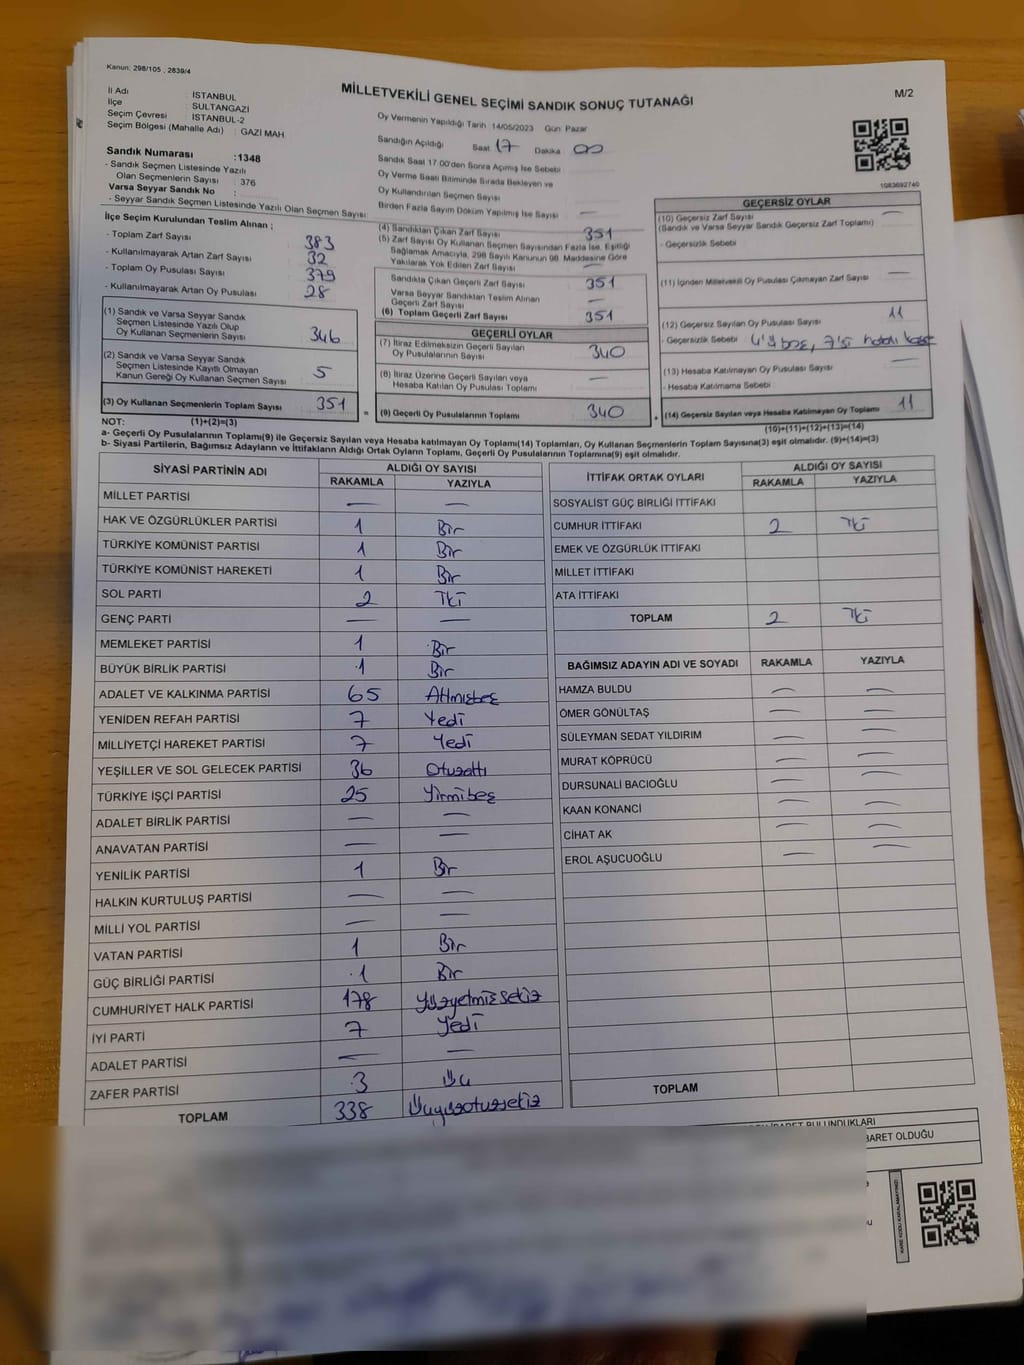 Kanun: 298/105 , 2839/4
MİLLETVEKİLİ GENEL SEÇİMİ SANDIK SONUÇ TUTANAĞI
M/2
İl Adı : İSTANBUL
İlçe : SULTANGAZİ
Seçim Çevresi : İSTANBUL-2
Seçim Bölgesi (Mahalle Adı) : GAZİ MAH
Sandık Numarası :1348
- Sandık Seçmen Listesinde Yazılı
Olan Seçmenlerin Sayısı : 376
Varsa Seyyar Sandık No :
- Seyyar Sandık Seçmen Listesinde Yazılı Olan Seçmen Sayısı:
Oy Vermenin Yapıldığı Tarih 14/05/2023 Gün Pazar
Sandığın Açıldığı Saat 17 Dakika 00
Sandık Saat 17.00'den Sonra Açılmış İse Sebebi
Oy Verme Saati Bitiminde Sırada Bekleyen ve
Oy Kullandırılan Seçmen Sayısı
Birden Fazla Sayım Döküm Yapılmış İse Sayısı —
1083692740
İlçe Seçim Kurulundan Teslim Alınan ;
- Toplam Zarf Sayısı 383
- Kullanılmayarak Artan Zarf Sayısı 32
- Toplam Oy Pusulası Sayısı 379
- Kullanılmayarak Artan Oy Pusulası 28
(1) Sandık ve Varsa Seyyar Sandık
Seçmen Listesinde Yazılı Olup
Oy Kullanan Seçmenlerin Sayısı 346
(2) Sandık ve Varsa Seyyar Sandık
Seçmen Listesinde Kayıtlı Olmayan
Kanun Gereği Oy Kullanan Seçmen Sayısı 5
(3) Oy Kullanan Seçmenlerin Toplam Sayısı 351
(4) Sandıktan Çıkan Zarf Sayısı 351
(5) Zarf Sayısı Oy Kullanan Seçmen Sayısından Fazla İse, Eşitliği
Sağlamak Amacıyla, 298 Sayılı Kanunun 98. Maddesine Göre
Yakılarak Yok Edilen Zarf Sayısı —
Sandıkta Çıkan Geçerli Zarf Sayısı 351
Varsa Seyyar Sandıktan Teslim Alınan
Geçerli Zarf Sayısı —
(6) Toplam Geçerli Zarf Sayısı 351
GEÇERLİ OYLAR
(7) İtiraz Edilmeksizin Geçerli Sayılan
Oy Pusulalarının Sayısı 340
(8) İtiraz Üzerine Geçerli Sayılan veya
Hesaba Katılan Oy Pusulası Toplamı —
= (9) Geçerli Oy Pusulalarının Toplamı 340
GEÇERSİZ OYLAR
(10) Geçersiz Zarf Sayısı —
(Sandık ve Varsa Seyyar Sandık Geçersiz Zarf Toplamı)
- Geçersizlik Sebebi
(11) İçinden Milletvekili Oy Pusulası Çıkmayan Zarf Sayısı —
(12) Geçersiz Sayılan Oy Pusulası Sayısı 11
- Geçersizlik Sebebi 4'ü boş, 7'si hatalı
(13) Hesaba Katılmayan Oy Pusulası Sayısı —
- Hesaba Katılmama Sebebi
+ (14) Geçersiz Sayılan veya Hesaba Katılmayan Oy Toplamı 11
NOT: (1)+(2)=(3)
(10)+(11)+(12)+(13)=(14)
a- Geçerli Oy Pusulalarının Toplamı(9) ile Geçersiz Sayılan veya Hesaba katılmayan Oy Toplamı(14) Toplamları, Oy Kullanan Seçmenlerin Toplam Sayısına(3) eşit olmalıdır. (9)+(14)=(3)
b- Siyasi Partilerin, Bağımsız Adayların ve İttifakların Aldığı Ortak Oyların Toplamı, Geçerli Oy Pusulalarının Toplamına(9) eşit olmalıdır.
SİYASİ PARTİNİN ADI ALDIĞI OY SAYISI
RAKAMLA YAZIYLA
MİLLET PARTİSİ — —
HAK VE ÖZGÜRLÜKLER PARTİSİ 1 Bir
TÜRKİYE KOMÜNİST PARTİSİ 1 Bir
TÜRKİYE KOMÜNİST HAREKETİ 1 Bir
SOL PARTİ 2 İki
GENÇ PARTİ — —
MEMLEKET PARTİSİ 1 Bir
BÜYÜK BİRLİK PARTİSİ 1 Bir
ADALET VE KALKINMA PARTİSİ 65 Altmışbeş
YENİDEN REFAH PARTİSİ 7 Yedi
MİLLİYETÇİ HAREKET PARTİSİ 7 Yedi
YEŞİLLER VE SOL GELECEK PARTİSİ 36 Otuzaltı
TÜRKİYE İŞÇİ PARTİSİ 25 Yirmibeş
ADALET BİRLİK PARTİSİ — —
ANAVATAN PARTİSİ — —
YENİLİK PARTİSİ 1 Bir
HALKIN KURTULUŞ PARTİSİ — —
MİLLİ YOL PARTİSİ — —
VATAN PARTİSİ 1 Bir
GÜÇ BİRLİĞİ PARTİSİ 1 Bir
CUMHURİYET HALK PARTİSİ 178 Yüzyetmişsekiz
İYİ PARTİ 7 Yedi
ADALET PARTİSİ — —
ZAFER PARTİSİ 3 Üç
TOPLAM 338 Üçyüzotuzsekiz
İTTİFAK ORTAK OYLARI ALDIĞI OY SAYISI
RAKAMLA YAZIYLA
SOSYALİST GÜÇ BİRLİĞİ İTTİFAKI
CUMHUR İTTİFAKI 2 İki
EMEK VE ÖZGÜRLÜK İTTİFAKI
MİLLET İTTİFAKI
ATA İTTİFAKI
TOPLAM 2 İki
BAĞIMSIZ ADAYIN ADI VE SOYADI RAKAMLA YAZIYLA
HAMZA BULDU — —
ÖMER GÖNÜLTAŞ — —
SÜLEYMAN SEDAT YILDIRIM — —
MURAT KÖPRÜCÜ — —
DURSUNALİ BACIOĞLU — —
KAAN KONANCİ — —
CİHAT AK — —
EROL AŞUCUOĞLU — —
TOPLAM
BULUNDUKLARI
BARET OLDUĞU
KARE KODU KARALAMAYINIZ!